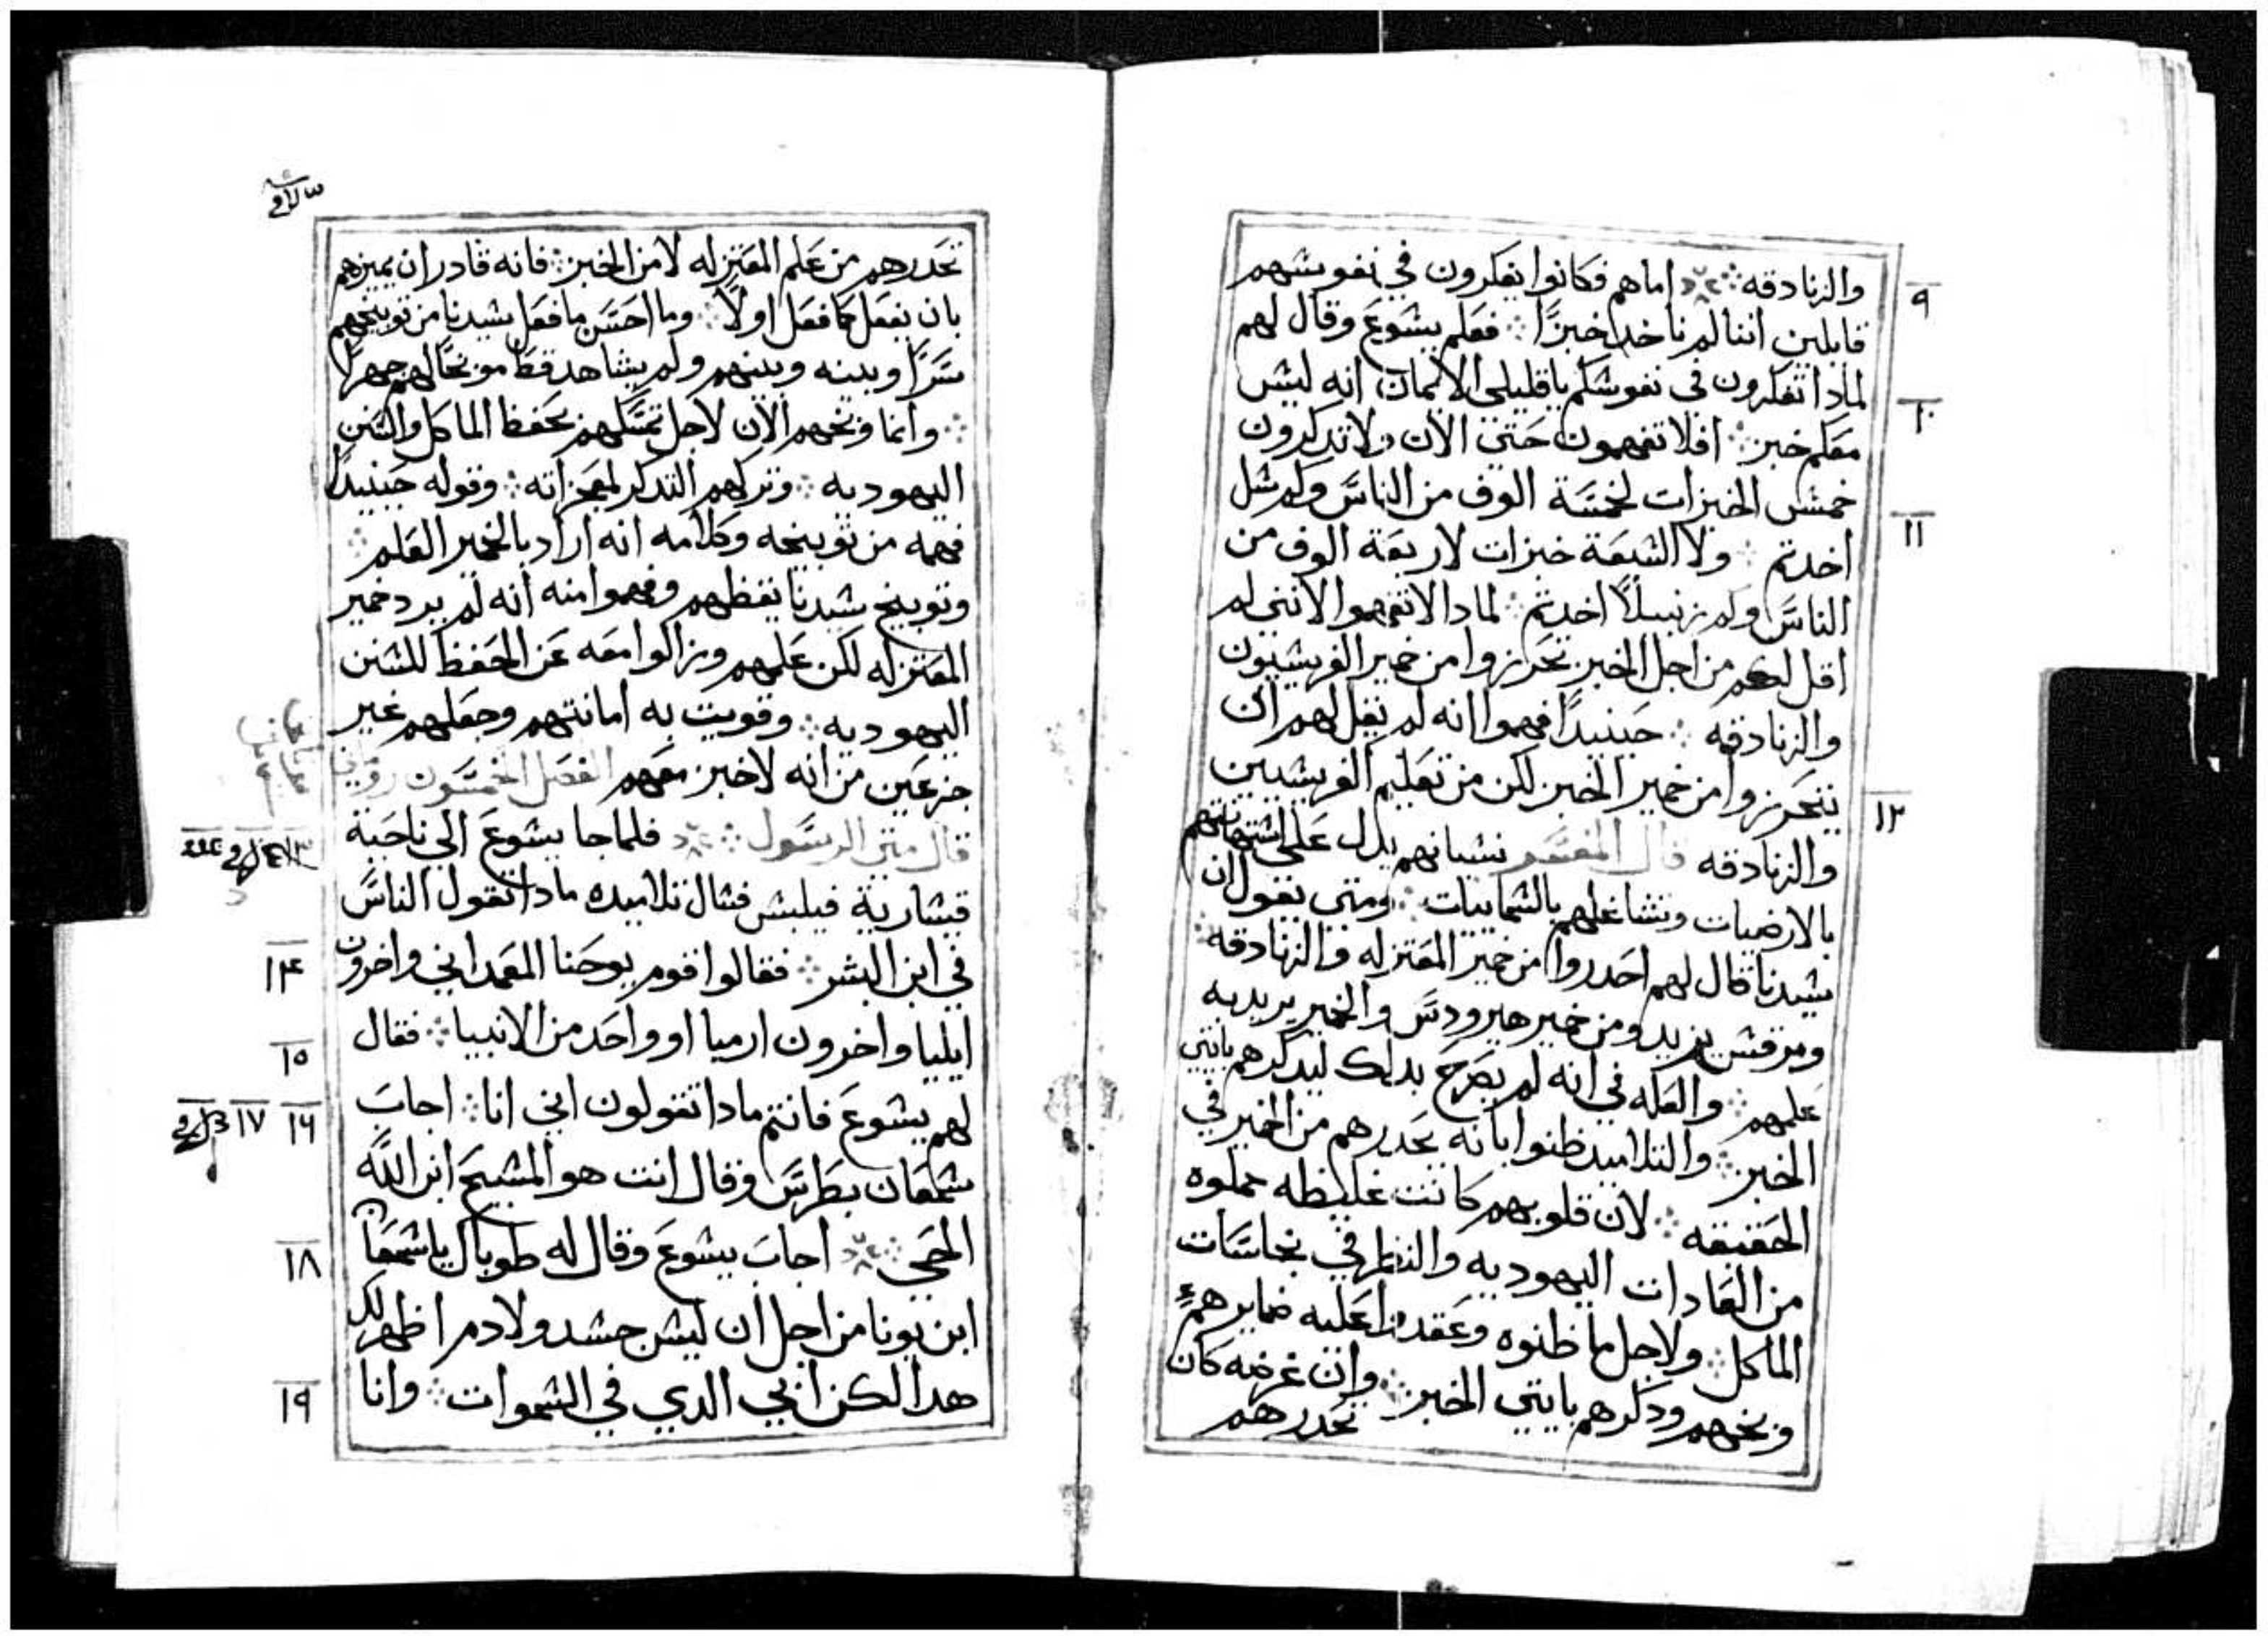 والزنادقه ⁘ اما هم فكانوا يفكرون في نفوشهم
قايلين اننا لم ناخد خبزًا ⁘ فعلم يشوع وقال لهم
لمادا تفكرون في نفوشكم ياقليلي الايمان انه ليش
معكم خبز ⁘ افلا تفهمون حتى الان ولا تدكرون
خمش الخبزات لخمسة الوف من الناس وكم شل
اخدتم ⁘ ولا الشبعة خبزات لاربعة الوف من
الناس وكم زنبيلًا اخدتم ⁘ لمادا لا تفهموا لانني لم
اقل لكم من اجل الخبز تحرزوا من خمير الفريشيون
والزنادقه ⁘ حينيدًا فهموا انه لم يقل لهم ان
يتحرزوا من خمير الخبز لكن من تعليم الفريشيين
والزنادقه قال المفسر نشيانهم يدل على اشتهاتهم
بالارضيات وتشاغلهم بالشماييات ⁘ ومتى يقول ان
شيدنا قال لهم احدروا من خمير المعتزله والزنادقه ⁘
ومرقش يزيد ومن خمير هيرودس والخمير يريد به
علمهم ⁘ والعله في انه لم يصرح بدلك ليدكرهم بايتي
الخبز ⁘ والتلاميد ظنوا بانه يحدرهم من الخمير في
الحقيقه ⁘ لان قلوبهم كانت غليظه مملوه
من العادات اليهوديه والنظر في نجاسات
الماكل ⁘ ولاجل ما ظنوه وعقدوا عليه ضمايرهم
وبخهم ودكرهم بايتي الخبز ⁘ وان غرضه كان
تحدرهم
تحدرهم من علم المعتزله لا من الخبز ⁘ فانه قادر ان يميزهم
بان يفعل كما فعل اولًا ⁘ وما احسن ما فعل شيدنا من توبيخهم
سرًا وبينه وبينهم ولم يشاهد قط موبخًا لهم جهرًا
⁘ وانما وبخهم الان لاجل تمسكهم بحفظ الماكل والسنن
اليهوديه ⁘ وتركهم التدكر لمعجزاته ⁘ وقوله حينيدًا
فهمه من توبيخه وكلامه انه اراد بالخمير العلم ⁘
وتوبيخ شيدنا يقظهم وفهموا منه انه لم يرد خمير
المعتزله لكن علمهم وزالوا معه عن الحفظ للشنن
اليهوديه ⁘ وقويت به امانتهم وجعلهم غير
جزعين من انه لا خبز معهم الفصل الخمسون
قال متى الرسول ⁘ فلما جا يشوع الى ناحية
قيشارية فيلبش فشال تلاميده مادا تقول الناس
في ابن البشر ⁘ فقالوا قوم يوحنا المعمداني واخرون
ايليا واخرون ارميا او واحد من الانبيا ⁘ فقال
لهم يشوع فانتم مادا تقولون اني انا ⁘ اجاب
شمعان بطرس وقال انت هو المشيح ابن الله
الحي ⁘ اجاب يشوع وقال له طوباك ياشمعان
ابن يونا من اجل ان ليش جشد ولا دم اظهر لك
هدا لكن ابي الدي في الشموات ⁘ وانا
٩
١٠
١١
١٢
١٣
١٤
١٥
١٦ ١٧
١٨
١٩